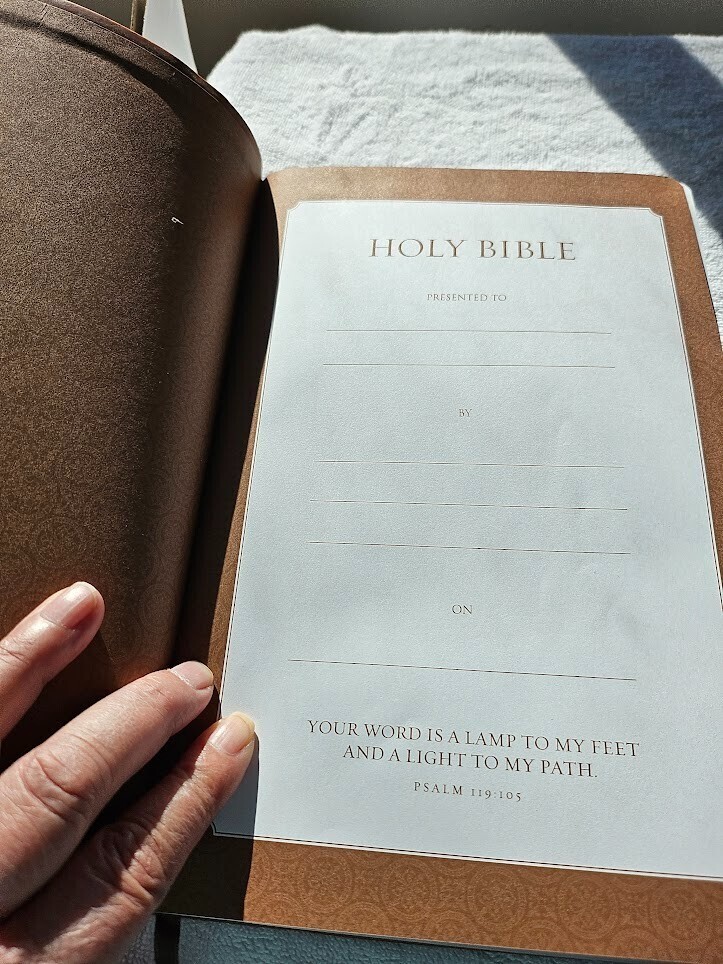 HOLY BIBLE
PRESENTED TO
BY
ON
YOUR WORD IS A LAMP TO MY FEET
AND A LIGHT TO MY PATH.
PSALM 119:105